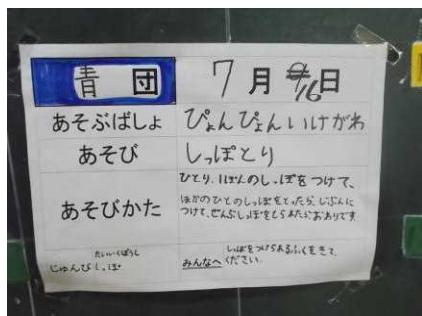 青団 7月16日
あそぶばしょ ぴょんぴょんいけがわ
あそび しっぽとり
あそびかた ひとり、1ぽんのしっぽをつけて、
ほかのひとのしっぽをとったら、じぶんに
つけて、ぜんぶしっぽをとられたらおわりです
たいいくぼうし
じゅんび しっぽ
みんなへ しっぽをつけられるふくをきて
ください。